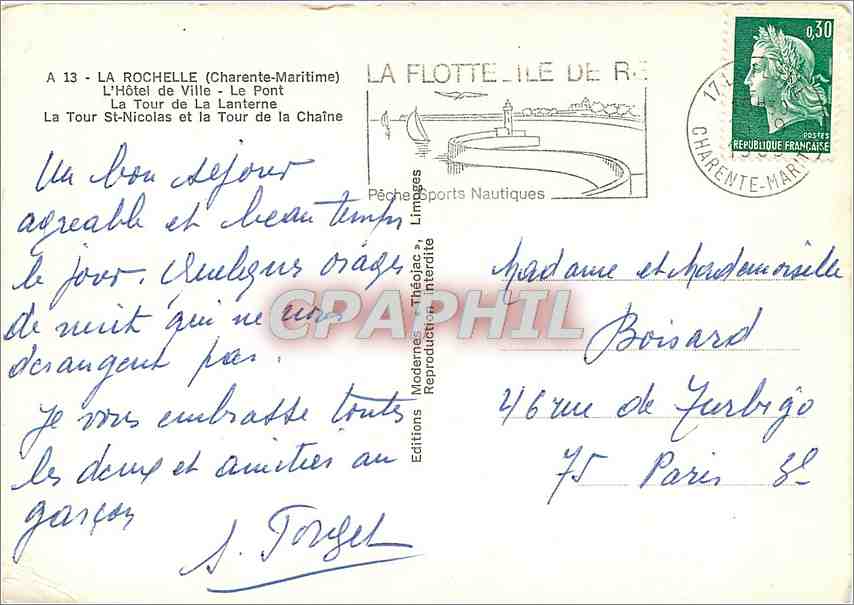 A 13 - LA ROCHELLE (Charente-Maritime)
L'Hôtel de Ville - Le Pont
La Tour de La Lanterne
La Tour St-Nicolas et la Tour de la Chaîne
LA FLOTTE - ILE DE RE
Pêche Sports Nautiques
17
CHARENTE-MARIT
0,30
POSTES
REPUBLIQUE FRANÇAISE
Un bon séjour
agreable et beau temps
le jour. Quelques orages
de nuit qui ne nous
derangent pas.
Je vous embrasse toutes
les deux et amities au
garçon
Editions Modernes « Théojac », Limoges
Reproduction interdite
CPAPHIL
Madame et Mademoiselle
Boisard
46 rue de Turbigo
75 Paris 3e